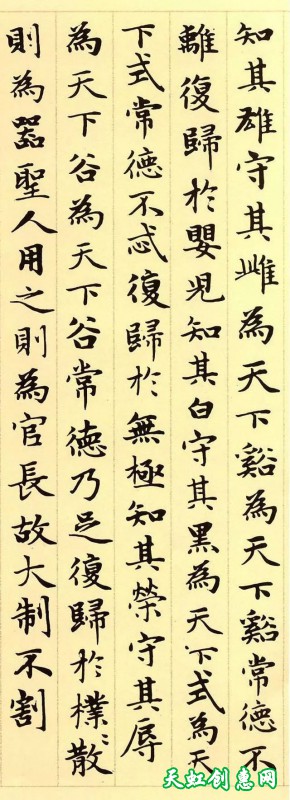 知其雄守其雌為天下谿為天下谿常德不
離復歸於嬰児知其白守其黑為天下式為天
下式常德不忒復歸於無極知其榮守其辱
為天下谷為天下谷常德乃足復歸於樸〻散
則為器聖人用之則為官長故大制不割
天虹创惠网